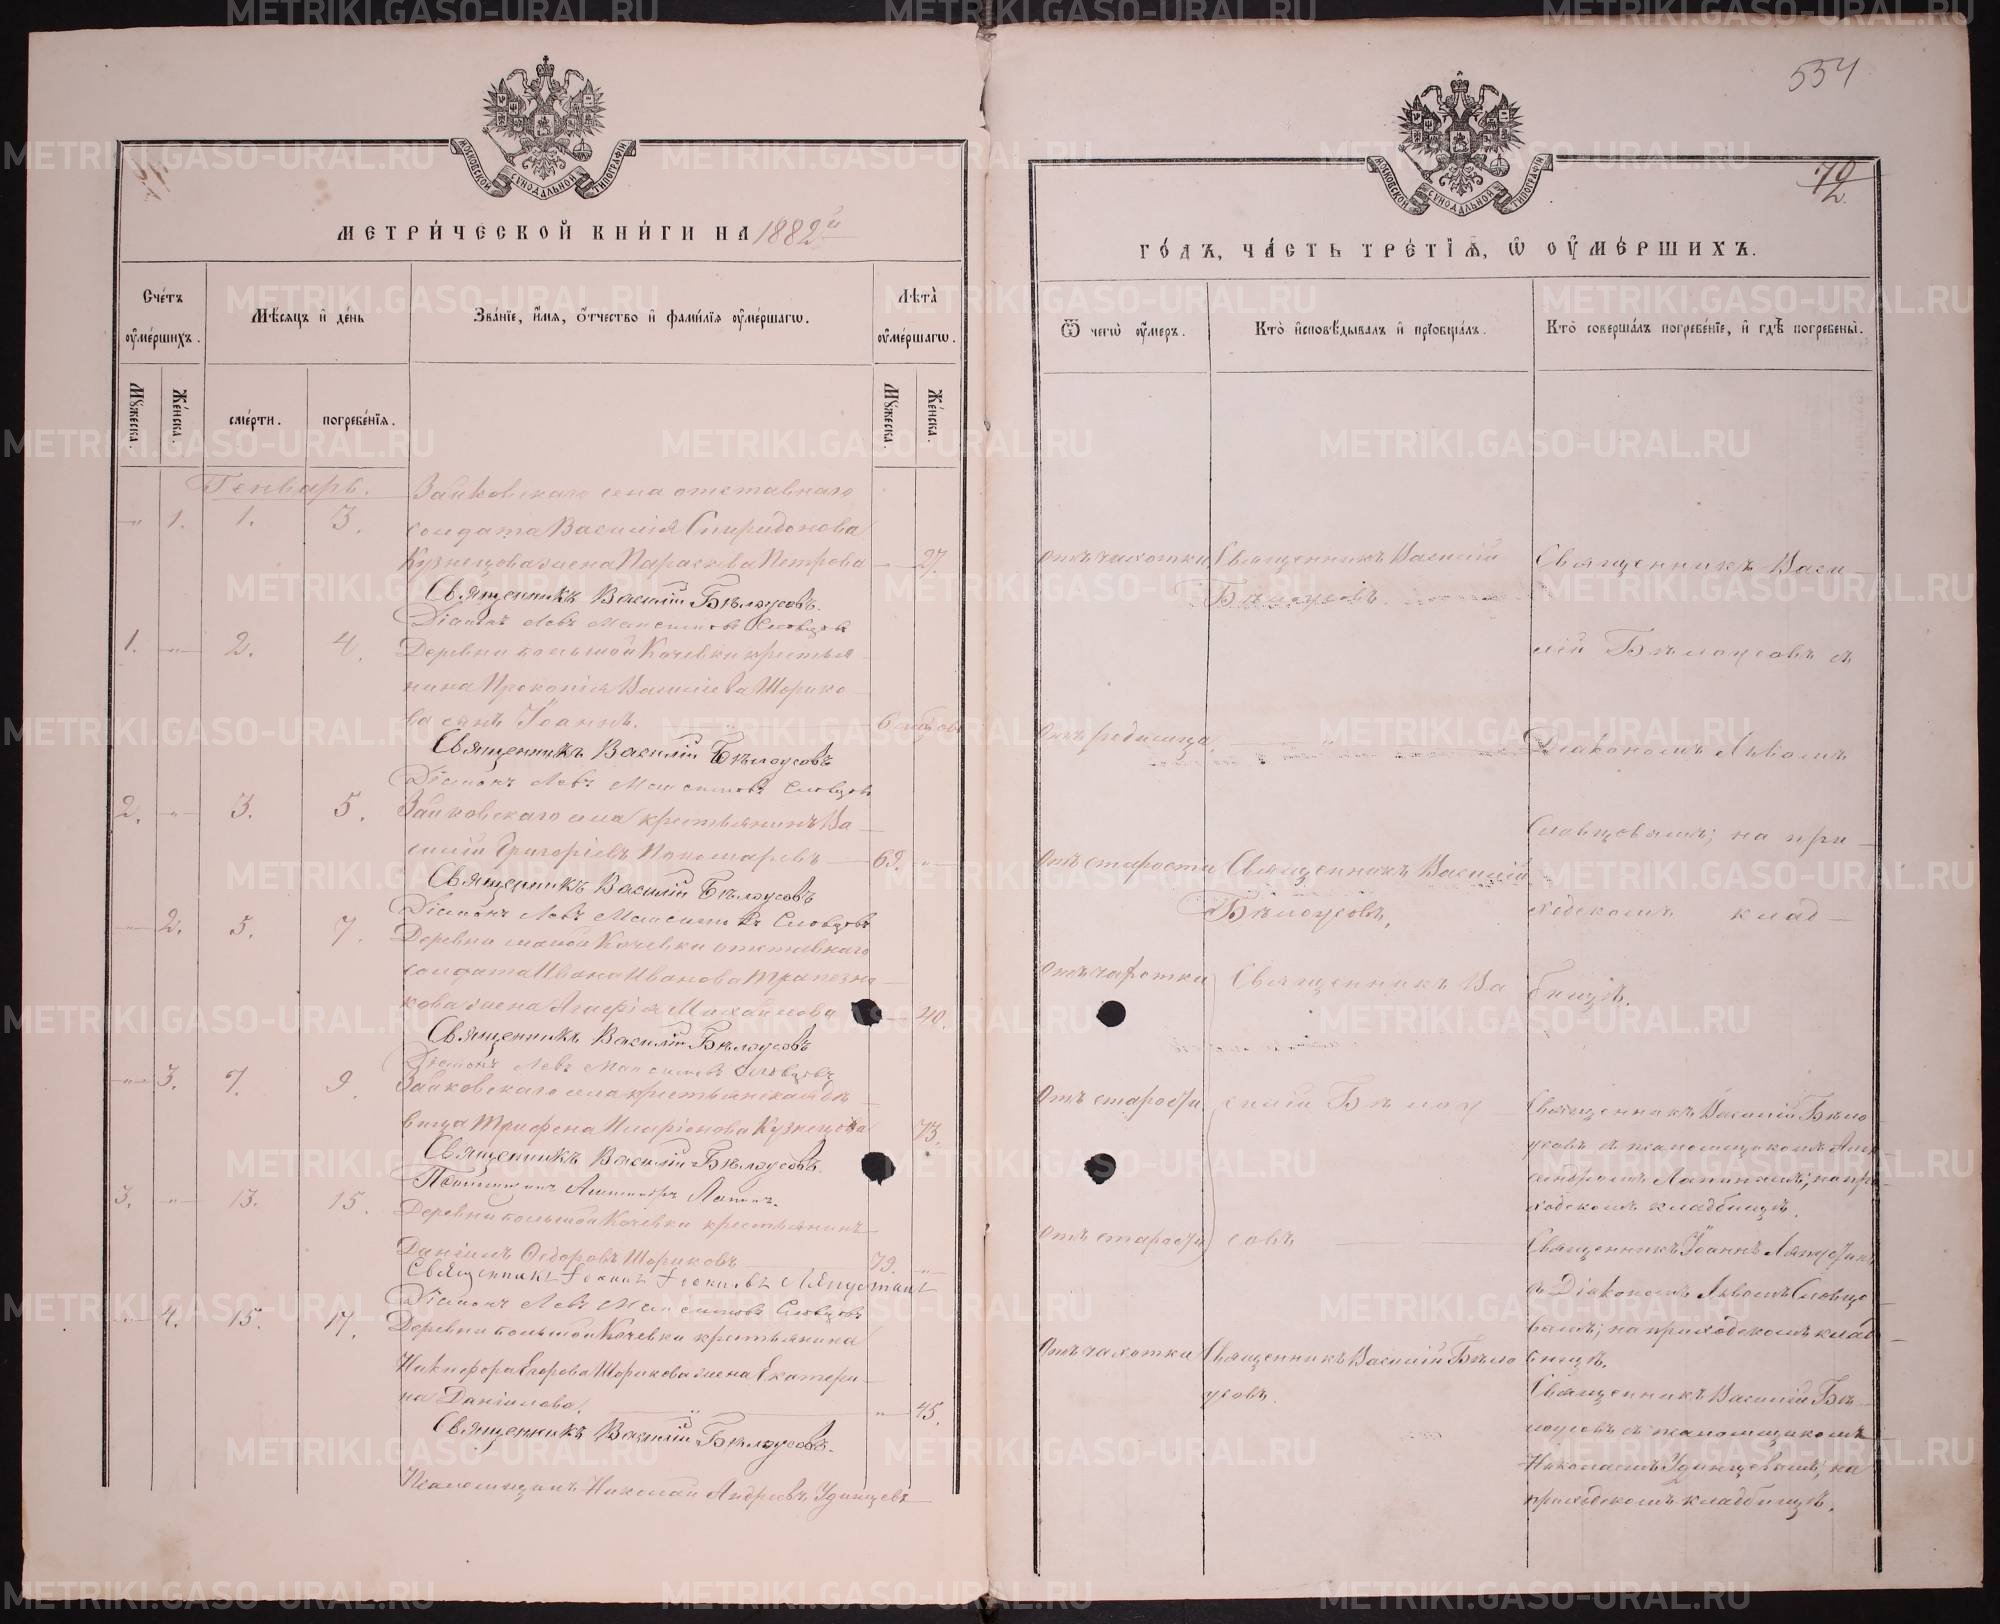 554
МОСКОВСКОЙ СѴНОДАЛЬНОЙ ТИПОГРАФІИ
МЕТРИ́ЧЕСКОЙ КНИ́ГИ НА 1882й
Сче́тъ ᲂу҆ме́ршихъ.
Мѣ́сяцъ и҆ де́нь
Зва́нїе, и҆́мя, ѻ҆́тчество и҆ фами́лїя ᲂу҆ме́ршагѡ.
Лѣта̀ ᲂу҆ме́ршагѡ.
Мꙋ́жеска.
Же́нска.
сме́рти.
погребе́нїя.
Мꙋ́жеска.
Же́нска.
Генварь.
Зайковскаго села отставнаго
" 1. 1. 3. солдата Василія Спиридонова
Кузнецова жена Параскева Петрова " 27.
Священникъ Василій Бѣлоусовъ.
Діаконъ Левъ Максимовъ Словцовъ
1. " 2. 4. Деревни большой Кочевки крестья-
нина Прокопія Васильева Шорико-
ва сынъ Іоаннъ. 6
Священникъ Василій Бѣлоусовъ
Діаконъ Левъ Максимовъ Словцовъ
2. " 3. 5. Зайковскаго села крестьянинъ Ва-
силій Григоріевъ Пономаревъ 69. "
Священникъ Василій Бѣлоусовъ
Діаконъ Левъ Максимовъ Словцовъ
" 2. 5. 7. Деревни малой Кочевки отставнаго
солдата Ивана Иванова Трапезни-
кова жена Агафія Михайлова 40.
Священникъ Василій Бѣлоусовъ
Діаконъ Левъ Максимовъ Словцовъ
" 3. 7. 9. Зайковскаго села крестьянская дѣ-
вица Трифена Иларіонова Кузнецова 73.
Священникъ Василій Бѣлоусовъ.
Псаломщикъ Александръ Лапинъ.
3. " 13. 15. Деревни большой Кочевки крестьянинъ
Даніилъ Ѳедоровъ Шориковъ 79. "
Священникъ Іоаннъ Ляпустинъ
Діаконъ Левъ Максимовъ Словцовъ
" 4. 15. 17. Деревни большой Кочевки крестьянина
Никифора Егорова Шорикова жена Екатери-
на Даніилова. " 45.
Священникъ Василій Бѣлоусовъ.
Псаломщикъ Николай Андреевъ Удинцевъ
МОСКОВСКОЙ СѴНОДАЛЬНОЙ ТИПОГРАФІИ
70/2.
ГО́ДЪ, ЧА́СТЬ ТРЕ́ТІѦ, Ѡ҆ ОУ҆МЕ́РШИХЪ.
Ѿ чегѡ̀ ᲂу҆́меръ.
Кто̀ и҆сповѣ́дывалъ и҆ прїобща́лъ.
Кто̀ соверша́лъ погребе́нїе, и҆ гдѣ̀ погребены̀.
Отъ чахотки Священникъ Василій
Бѣлоусовъ.
Священникъ Васи-
лій Бѣлоусовъ съ
Отъ родимца.
Діакономъ Львомъ
Словцовымъ; на при-
Отъ старости Священникъ Василій
Бѣлоусовъ,
ходскомъ клад-
Отъ чахотки Священникъ Ва
бищѣ.
Отъ старости силій Бѣлоу
Священникъ Василій Бѣло
усовъ съ псаломщикомъ Алек-
сандромъ Лапинымъ; на при-
ходскомъ кладбищѣ.
Отъ старости совъ
Священникъ Іоаннъ Ляпустинъ
съ Діакономъ Львомъ Словцо-
вымъ; на приходскомъ клад-
бищѣ.
Отъ чахотки Священникъ Василій Бѣло
усовъ.
Священникъ Василій Бѣ-
лоусовъ съ псаломщикомъ
Николаемъ Удинцевымъ; на
приходскомъ кладбищѣ.
METRIKI.GASO-URAL.RU